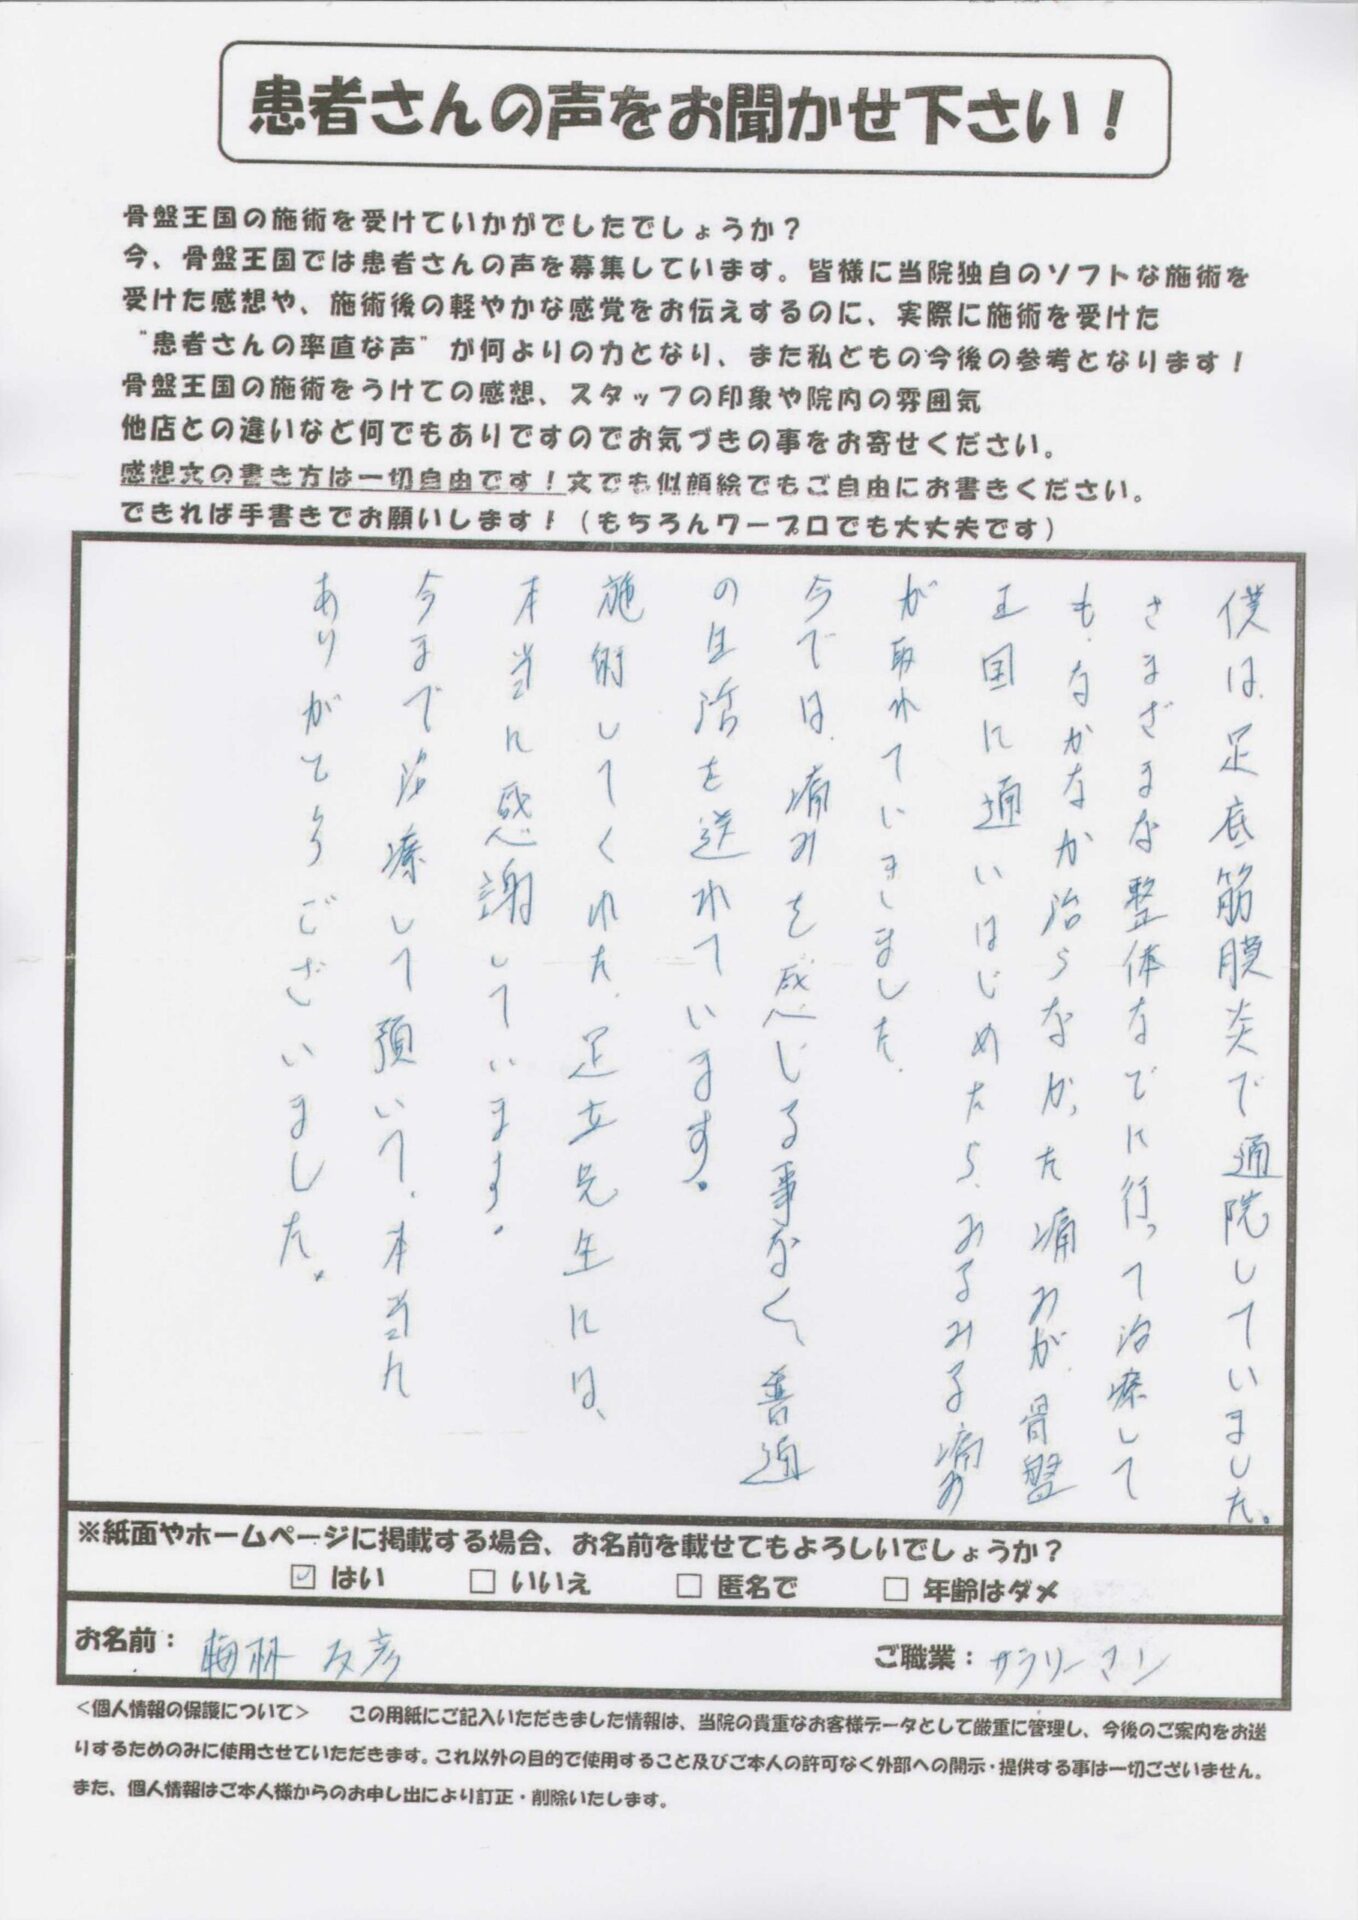 患者さんの声をお聞かせ下さい！
骨盤王国の施術を受けていかがでしたでしょうか？
今、骨盤王国では患者さんの声を募集しています。皆様に当院独自のソフトな施術を
受けた感想や、施術後の軽やかな感覚をお伝えするのに、実際に施術を受けた
“患者さんの率直な声”が何よりの力となり、また私どもの今後の参考となります！
骨盤王国の施術をうけての感想、スタッフの印象や院内の雰囲気
他店との違いなど何でもありですのでお気づきの事をお寄せください。
感想文の書き方は一切自由です！文でも似顔絵でもご自由にお書きください。
できれば手書きでお願いします！（もちろんワープロでも大丈夫です）
僕は、足底筋膜炎で通院していました。
さまざまな整体なでに行って治療して
も、なかなか治らなかった痛みが、骨盤
王国に通いはじめたら、みるみる痛み
が取れていきました。
今では、痛みを感じる事なく、普通
の生活を送れています。
施術してくれた、足立先生には、
本当に感謝しています。
今まで治療して頂いて、本当に
ありがとうございました。
※紙面やホームページに掲載する場合、お名前を載せてもよろしいでしょうか？
☑ はい □ いいえ □ 匿名で □ 年齢はダメ
お名前： 梅林 友彦 ご職業：サラリーマン
＜個人情報の保護について＞ この用紙にご記入いただきました情報は、当院の貴重なお客様データとして厳重に管理し、今後のご案内をお送
りするためのみに使用させていただきます。これ以外の目的で使用すること及びご本人の許可なく外部への開示・提供する事は一切ございません。
また、個人情報はご本人様からのお申し出により訂正・削除いたします。